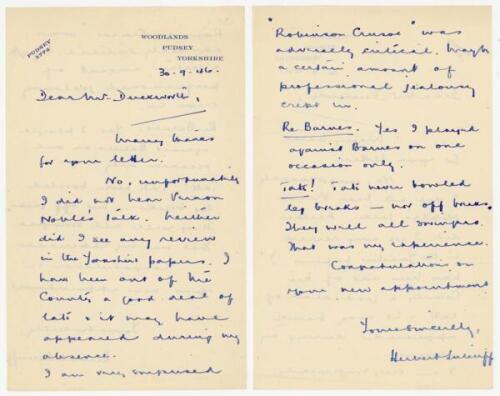 PUDSEY 3776
WOODLANDS
PUDSEY
YORKSHIRE
30-9-'60.
Dear Mr. Duckworth,
Many thanks
for your letter.
No, unfortunately
I did not hear Vernon
Noble's talk. Neither
did I see any review
in the Yorkshire papers. I
have been out of the
County a good deal of
late & it may have
appeared during my
absence.
I am very surprised
"Robinson Crusoe" was
adversely critical. Maybe
a certain amount of
professional jealousy
crept in.
Re Barnes. Yes I played
against Barnes on one
occasion only.
Tate! Tate never bowled
leg breaks — nor off breaks.
They were all swingers.
That was my experience.
Congratulations on
your new appointment
Yours sincerely,
Herbert Sutcliffe